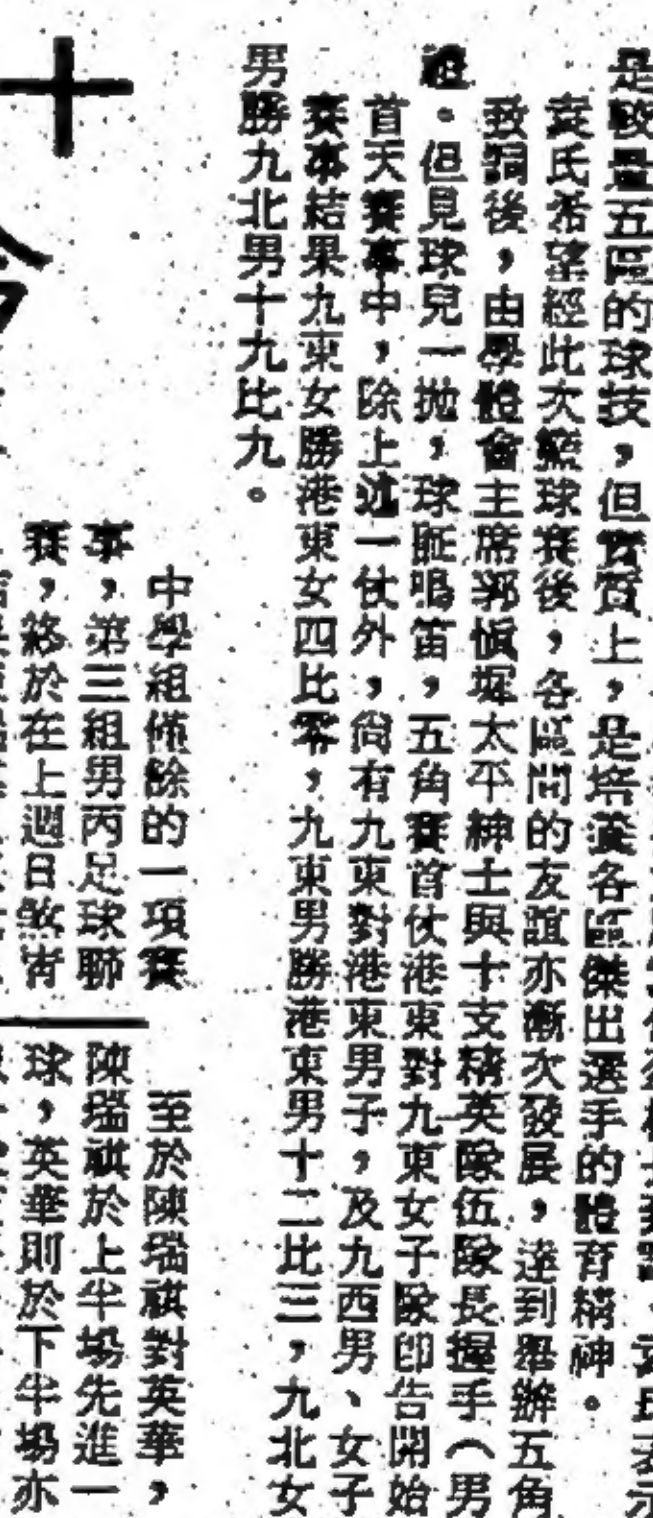 是較量五區的球技，但實質上，是培養各區傑出選手的體育精神。
袁氏希望經此次籃球賽後，各區間的友誼亦漸次發展，達到舉辦五角
致詞後，由學體會主席郭慎墀太平紳士與十支精英隊伍隊長握手（男
。但見球兒一拋，球証鳴笛，五角賽首仗港東對九東女子隊即告開始
首天賽事中，除上述一仗外，尚有九東對港東男子，及九西男、女子
賽事結果九東女勝港東女四比零，九東男勝港東男十二比三，九北女
男勝九北男十九比九。
十
中學組僅餘的一項賽
事，第三組男丙足球聯
賽，終於在上週日煞科
至於陳瑞祺對英華，
陳瑞祺於上半場先進一
球，英華則於下半場亦